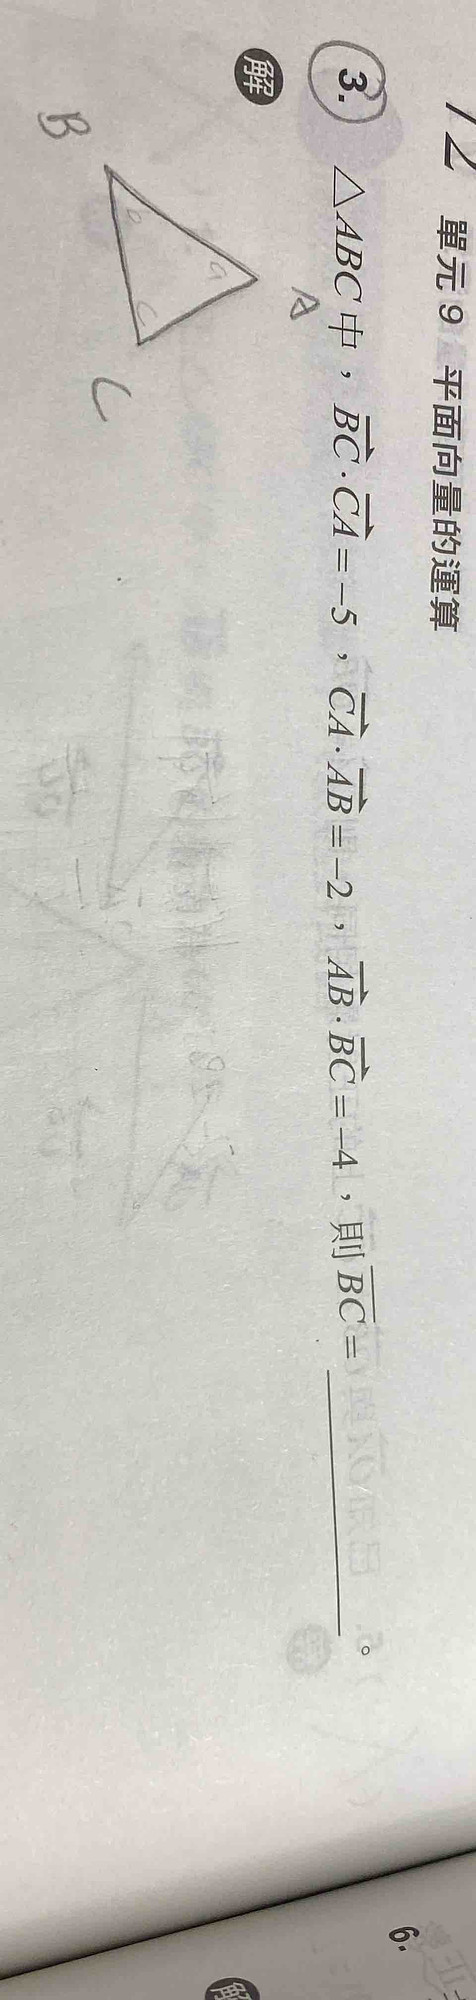 12 單元 9 平面向量的運算
3. △ABC 中，$\overrightarrow{BC}\cdot\overrightarrow{CA}=-5$，$\overrightarrow{CA}\cdot\overrightarrow{AB}=-2$，$\overrightarrow{AB}\cdot\overrightarrow{BC}=-4$，則 $\overline{BC}=$ ________。
解
A
a
B
b
c
C
6.
解